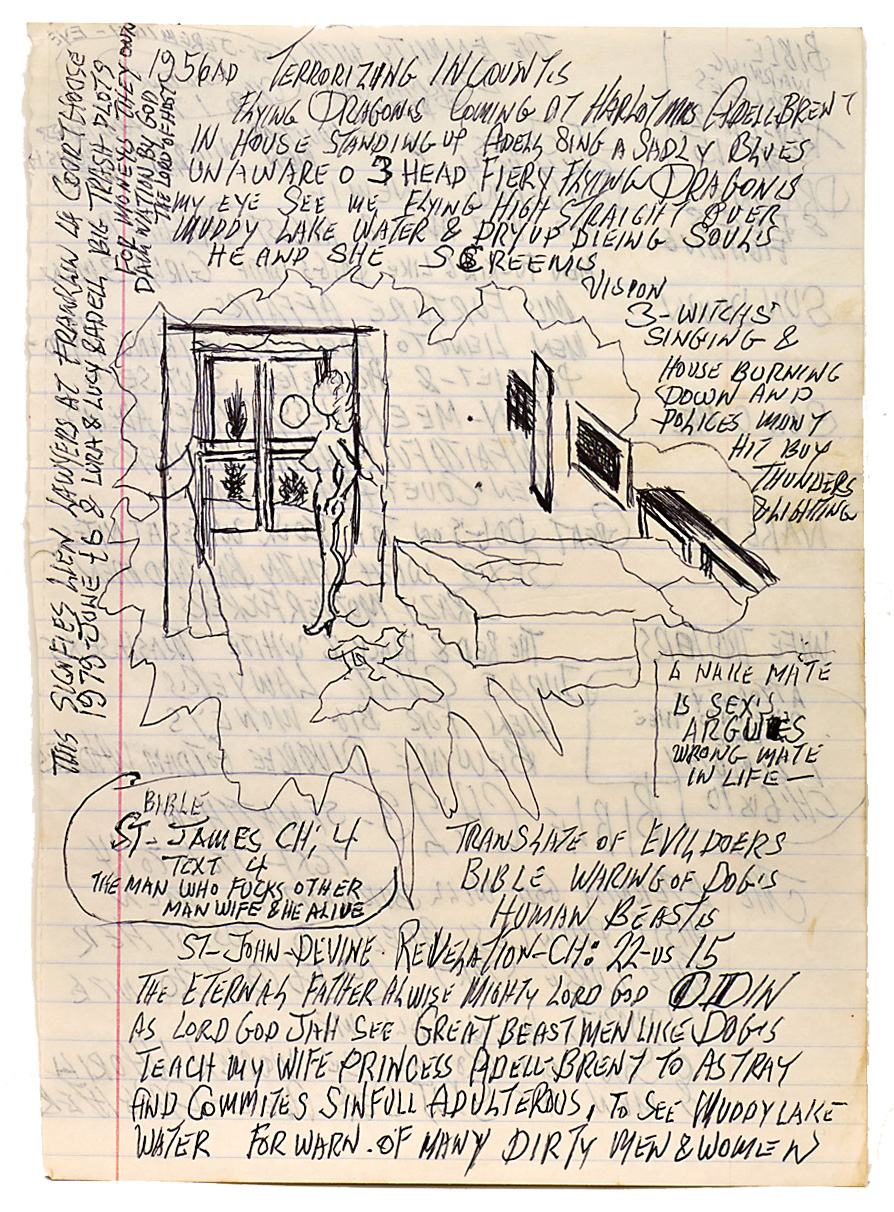 1956AD TERRORIZING INCOUNTIS
FLYING DRAGONIS COMING AT HARLOT MRS ADELL BRENT
IN HOUSE STANDING UP ADELL SING A SADLY BLUES
UNAWARE O 3 HEAD FIERY FLYING DRAGONIS
MY EYE SEE ME FLYING HIGH STRAIGHT OVER
MUDDY LAKE WATER & DRY UP DIEING SOULS
HE AND SHE SCREEMS
VISION
3-WITCHS
SINGING &
HOUSE BURNING
DOWN AND
POLICES MONY
HIT BUY
THUNDERS
& LIGHTING
THIS SIGNFIES LIEN LAWYERS AT FRANKLIN LA COURTHOUSE
1979-JUNE 26 & LURA & LUCY & ADELL BIG TRASH PLOTS
FOR MONEYS THEY OWN
DAMNATION BY GOD
THE LORD OF HOST
A NAKE MATE
IS SEXIS
ARGUES
WRONG MATE
IN LIFE —
BIBLE
ST-JAMES CH; 4
TEXT 4
THE MAN WHO FUCKS OTHER
MAN WIFE & HE ALIVE
TRANSLATE OF EVILDOERS
BIBLE WARING OF DOG'S
HUMAN BEASTIS
ST-JOHN-DEVINE. REVELATION-CH: 22-US 15
THE ETERNAL FATHER ALWISE MIGHTY LORD GOD ODIN
AS LORD GOD JAH SEE GREAT BEAST MEN LIKE DOG'S
TEACH MY WIFE PRINCESS ADELL-BRENT TO ASTRAY
AND COMMITES SINFULL ADULTEROUS, TO SEE MUDDY LAKE
WATER FOR WARN. OF MANY DIRTY MEN & WOMEN